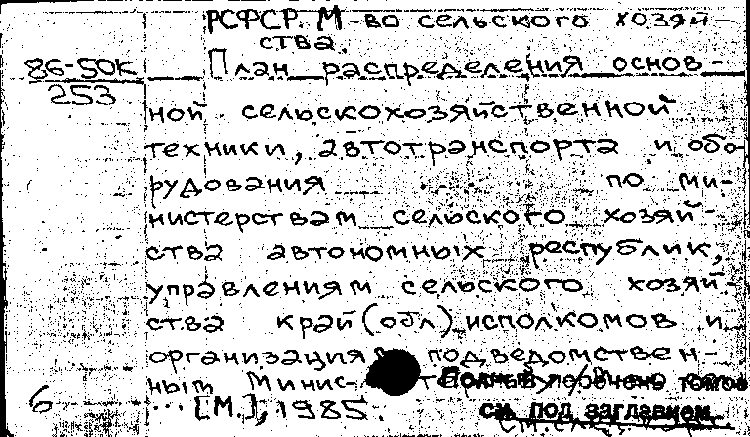 РСФСР. М-во сельского хозяй-
ства.
86-50К
253
План распределения основ-
ной сельскохозяйственной
техники, автотранспорта и обо-
рудования по ми-
нистерствам сельского хозяй-
ства автономных республик,
управлениям сельского хозяй-
ства край(обл)исполкомов и
организациям подведомствен-
ным Минис-
Полный перечень томов
6 ... [М.], 1985.
см. под заглавием